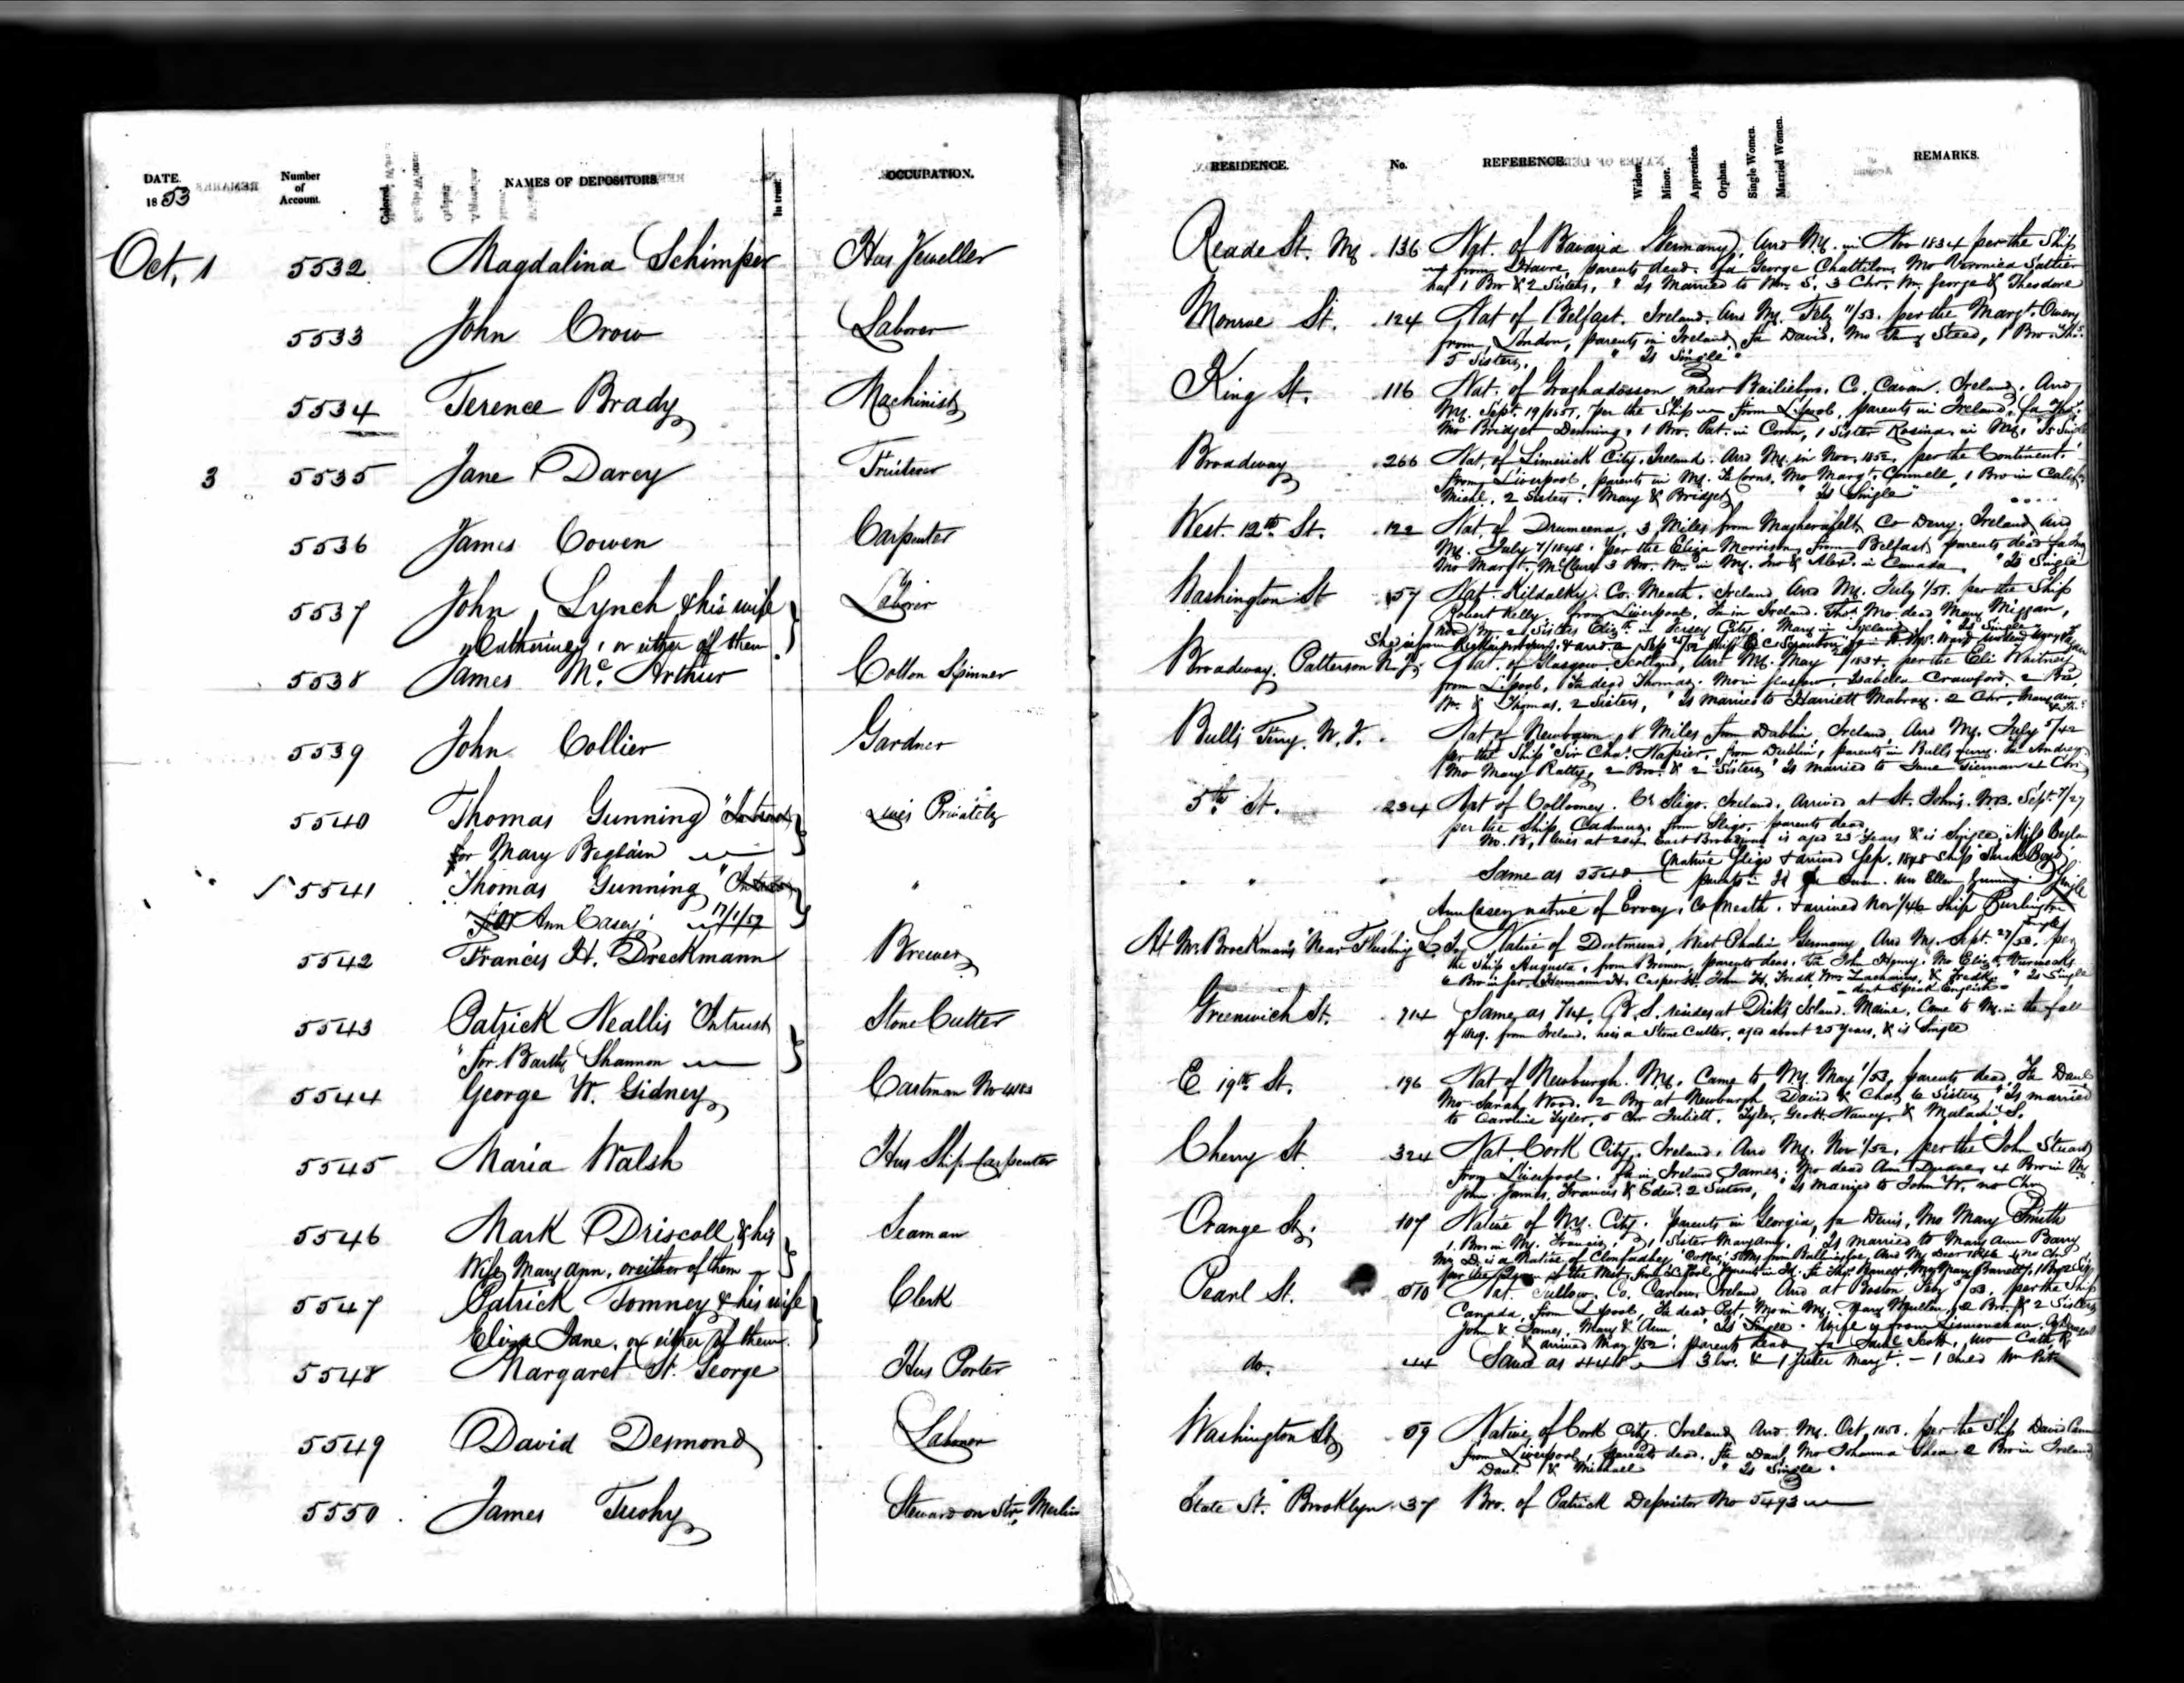 DATE.
1853
Number
of
Account.
Colored.
NAMES OF DEPOSITORS.
In trust.
OCCUPATION.
RESIDENCE.
No.
REFERENCE.
Widow.
Minor.
Apprentice.
Orphan.
Single Women.
Married Women.
REMARKS.
Oct, 1 5532 Magdalina Schimper Hus Jeweller Reade St. NY 136 Nat. of Bavaria Germany, Arrd NY. in Nov 1834 per the Ship
from Havre, parents dead. fa George Chattilon, Mo Veronica Sattier
has 1 Bro & 2 Sisters, " Is Married to Wm. S. 3 Chr. Wm. George & Theodore
5533 John Crow Laborer Monroe St. 124 Nat of Belfast. Ireland. Arrd NY. Feby 11/53. per the Margt. Owens
from London, parents in Ireland, fa David, Mo Steed, 1 Bro. Ths.
5 Sisters, " Is Single "
5534 Terence Brady Machinist King St. 116 Nat. of near Bailieboro. Co. Cavan. Ireland. Arrd
NY. Sept. 19/1851, per the Ship from L.pool, parents in Ireland, fa
Mo Bridget Denning, 1 Bro. Pat. in Conn, 1 Sister Rosina, in NY. Is Single
3 5535 Jane Darcy Fruiterer Broadway 266 Nat. of Limerick City, Ireland. Arrd NY. in Nov. 1852, per the Continent.
from Liverpool, parents in NY. fa Corns. Mo Margt. Connell, 1 Bro in Calif.
Michl. 2 Sisters. Mary & Bridget " Is Single "
5536 James Cowen Carpenter West. 12th St. 122 Nat. of Drumeena, 3 Miles from Magherafelt, Co Derry. Ireland, Arrd
NY. July 7/1848. per the Eliza Morrison, from Belfast, parents dead fa
Mo Margt. McClure 3 Bro. Wm. in NY. Jno & Alex. in Canada, " Is Single
5537 John Lynch & his wife Laborer Washington St 57 Nat. Kildalky, Co. Meath. Ireland, Arrd NY. July 1/51. per the Ship
Catherine, or either of them
Robert Kelly, from Liverpool, Fa in Ireland. Thos. Mo dead Mary Miggan,
2 Sisters Elizth. in Jersey City. Mary in Ireland " Is Single
5538 James Mc. Arthur Cotton Spinner Broadway. Patterson N.J. Nat. of Glasgow. Scotland, Arrd NY. May 1834. per the Eli Whitney
from L.pool, Fa dead Thomas. Mo in Glasgow, Isabella Crawford, 2 Bro,
Wm. & Thomas, 2 Sisters, " Is married to Harriett Mabray. 2 Chr, Mary Ann
5539 John Collier Gardner Bulls Ferry. N.J. Nat. of 8 Miles from Dublin. Ireland, Arrd NY. July 5/42
per the Ship "Sir Chas. Napier, from Dublin, parents in Bulls Ferry. fa Andrew
Mo Mary Ratty, 2 Bro. & 2 Sisters, " Is married to Jane Tiernan 4 Chr
5540 Thomas Gunning "In trust Lives Privately 5th St. 234 Nat of Collooney. Co Sligo. Ireland. Arrived at St. Johns. N.B. Sept. 7/27
for Mary Beglain
per the Ship Cadmus. from Sligo, parents dead.
Mo. B, lives at 204 East Broadway is aged 23 Years & is Single,
5541 Thomas Gunning "In trust " Same as 5540. Native Sligo & arrived Sep. 1848 Ship Sarah Boyd
for Ann Casey 17/1/57
Ann Casey native of Ervey, Co Meath. & arrived Nov /46 Ship Burlington
5542 Francis H. Dreckmann Brewer At Mr. Brockman's Near Flushing L.I. Native of Dortmund, West Phalia Germany, Arrd NY. Sept. 27/53. per
the Ship Augusta, from Bremen, parents dead. Fa John Henry. Mo Elizth.
6 Bro in Ger. Hermann H. Casper H. John H. Fredk. Wm. Zacharias, & Fredk. " Is Single
dont Speak English
5543 Patrick Neallis "In trust Stone Cutter Greenwich St. 714 Same as 714. B. S. resides at Dicks Island. Maine. Came to NY. in the fall
for Barth. Shannon
of from Ireland. he is a Stone Cutter, aged about 25 Years, & is Single
5544 George W. Gidney Cartman No 4183 E. 19th St. 196 Nat of Newburgh. NY. Came to NY. May 1/53, parents dead. Fa Danl
Mo Sarah Wood. 2 Bro at Newburgh David & Chas. 6 Sisters " Is married
to Caroline Tyler, 5 Chr Juliett. Tyler, Scott. Nancy. & Malachi S.
5545 Maria Walsh Hus Ship Carpenter Cherry St. 324 Nat. Cork City. Ireland. Arrd NY. Nov 1/52. per the John Stuart
from Liverpool. fa in Ireland James. Mo dead Ann Duane, 4 Bro in NY
John. James. Francis & Edwd. 2 Sisters, " Is married to John W. no Chr
5546 Mark Driscoll & his Seaman Orange St. 107 Native of NY. City. parents in Georgia, fa Denis, Mo Mary Smith
Wife Mary Ann, or either of them
1. Bro in NY. Francis, 1 Sister Mary Ann, Is married to Mary Ann Barry
5547 Patrick Tomney & his wife Clerk Pearl St. 510 Nat. Tullow. Co. Carlow. Ireland, Arrd at Boston Feby /53, per the Ship
Eliza Jane, or either of them.
Canada, from L.pool, Fa dead Pat, Mo in NY. Mary Mullen, 2 Bro. & 2 Sisters
John & James. Mary & Ann. " Is Single. Wife is from
& arrived May 1/52. parents dead fa Saml Scott, mo Cath.
5548 Margaret St. George Hus Porter do. 44 Same as 4448 3 bro. & 1 Sister Margt. – 1 child Wm
5549 David Desmond Laborer Washington St. 59 Native of Cork City. Ireland, Arrd. NY. Oct, 1850. per the Ship David Cannon
from Liverpool, parents dead. Fa Danl, Mo Johanna Shea. 2 Bro in Ireland
Danl. & Michael " Is Single "
5550 James Tuohy Steward on Str. Merlin State St. "Brooklyn 37 Bro. of Patrick Depositor No 5493